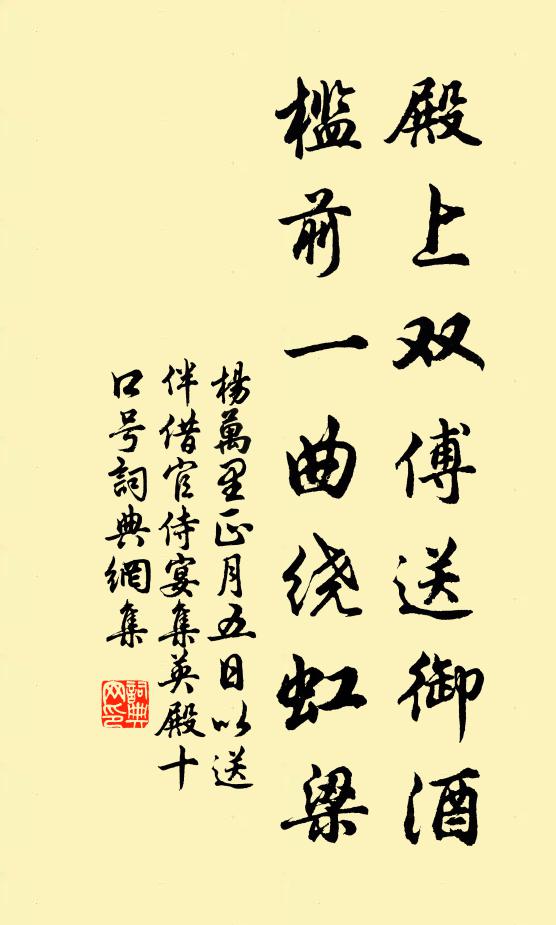 殿上双傅送御酒
槛前一曲绕虹梁
楊萬里正月五日以送
伴借官侍宴集英殿十
口号詞典網集
詞典网印